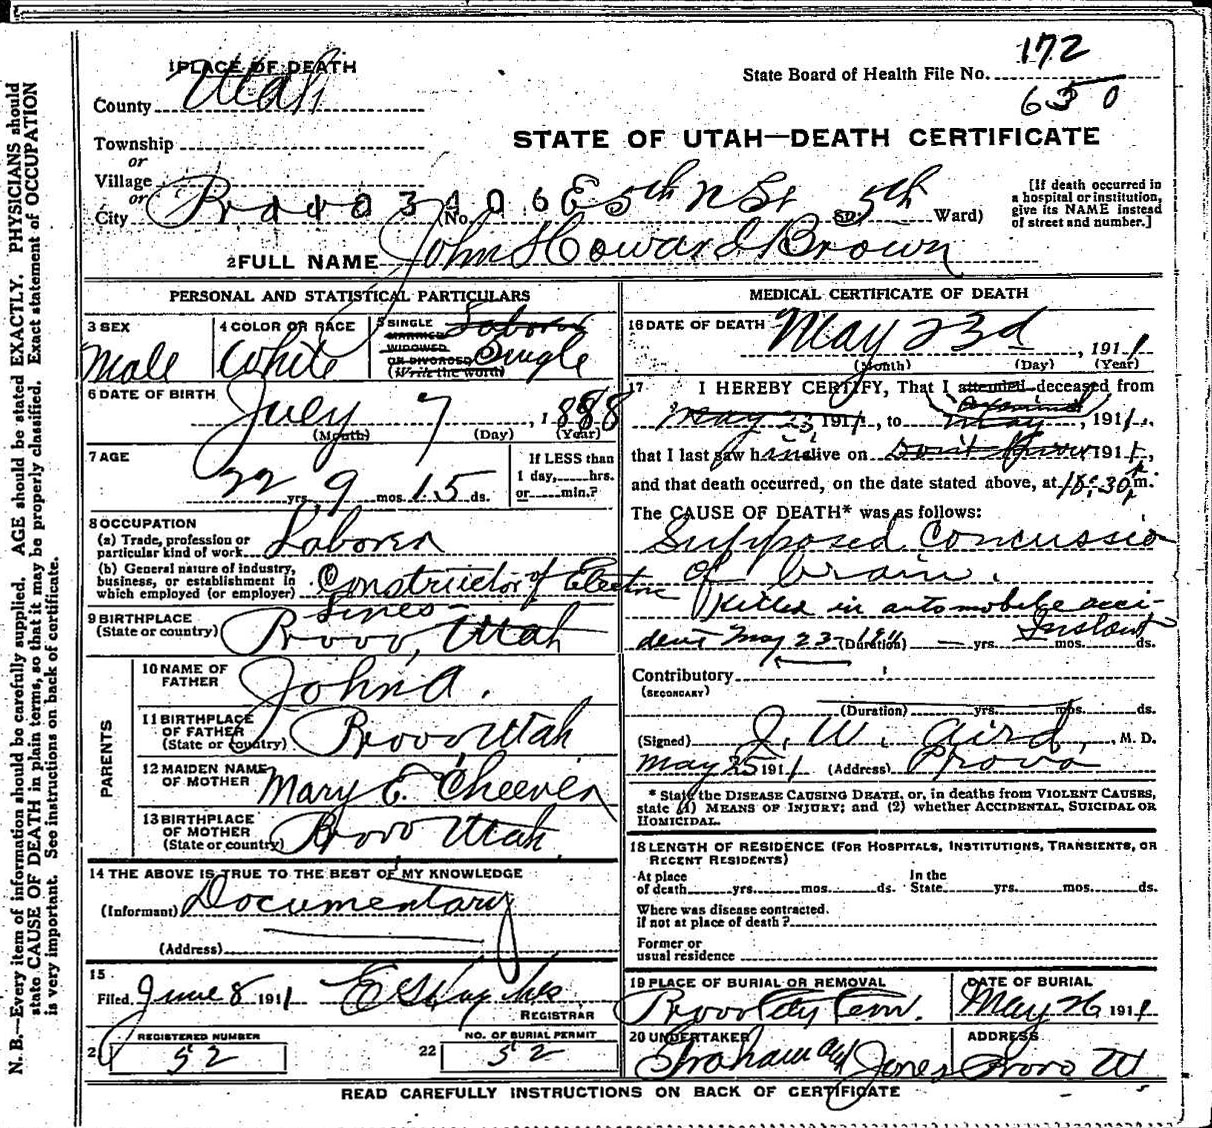 172
State Board of Health File No.
650
1 PLACE OF DEATH
County Utah
STATE OF UTAH—DEATH CERTIFICATE
Township
or
Village
or
City Provo No. E 5th N St 5th Ward)
[If death occurred in
a hospital or institution,
give its NAME instead
of street and number.]
2 FULL NAME John Howard Brown
PERSONAL AND STATISTICAL PARTICULARS
3 SEX
Male
4 COLOR OR RACE
White
5 SINGLE
MARRIED
WIDOWED
OR DIVORCED
(Write the word)
Laborer
Single
6 DATE OF BIRTH
July 7, 1888
(Month) (Day) (Year)
7 AGE
22 yrs. 9 mos. 15 ds.
If LESS than
1 day,.....hrs.
or.....min.?
8 OCCUPATION
(a) Trade, profession or
particular kind of work Laborer
(b) General nature of industry,
business, or establishment in
which employed (or employer) Constructor of Electric
Lines
9 BIRTHPLACE
(State or country) Provo, Utah
PARENTS
10 NAME OF
FATHER John A.
11 BIRTHPLACE
OF FATHER
(State or country) Provo Utah
12 MAIDEN NAME
OF MOTHER Mary E. Cheever
13 BIRTHPLACE
OF MOTHER
(State or country) Provo Utah
14 THE ABOVE IS TRUE TO THE BEST OF MY KNOWLEDGE
(Informant) Documentary
(Address)
15
Filed June 8 1911
REGISTRAR
21 REGISTERED NUMBER
52
22 NO. OF BURIAL PERMIT
52
MEDICAL CERTIFICATE OF DEATH
16 DATE OF DEATH May 23d, 1911
(Month) (Day) (Year)
17 I HEREBY CERTIFY, That I attended deceased from
examined
May 23, 1911, to May, 1911,
that I last saw him alive on Don't Know 1911,
and that death occurred, on the date stated above, at 10:30 P m.
The CAUSE OF DEATH* was as follows:
Supposed Concussio
of brain.
Killed in automobile acci-
dent May 23-1911 (Duration) yrs. mos. Instant ds.
Contributory
(SECONDARY)
(Duration) yrs. mos. ds.
(Signed) J. W. Aird, M. D.
May 25 1911 (Address) Provo
* State the DISEASE CAUSING DEATH, or, in deaths from VIOLENT CAUSES,
state (1) MEANS OF INJURY; and (2) whether ACCIDENTAL, SUICIDAL OR
HOMICIDAL.
18 LENGTH OF RESIDENCE (FOR HOSPITALS, INSTITUTIONS, TRANSIENTS, OR
RECENT RESIDENTS)
At place
of death yrs. mos. ds.
In the
State yrs. mos. ds.
Where was disease contracted,
if not at place of death?
Former or
usual residence
19 PLACE OF BURIAL OR REMOVAL
Provo City Cem.
DATE OF BURIAL
May 26 1911
20 UNDERTAKER
Graham and Jones
ADDRESS
Provo Ut
READ CAREFULLY INSTRUCTIONS ON BACK OF CERTIFICATE
N. B.—Every item of information should be carefully supplied. AGE should be stated EXACTLY. PHYSICIANS should
state CAUSE OF DEATH in plain terms, so that it may be properly classified. Exact statement of OCCUPATION
is very important. See instructions on back of certificate.